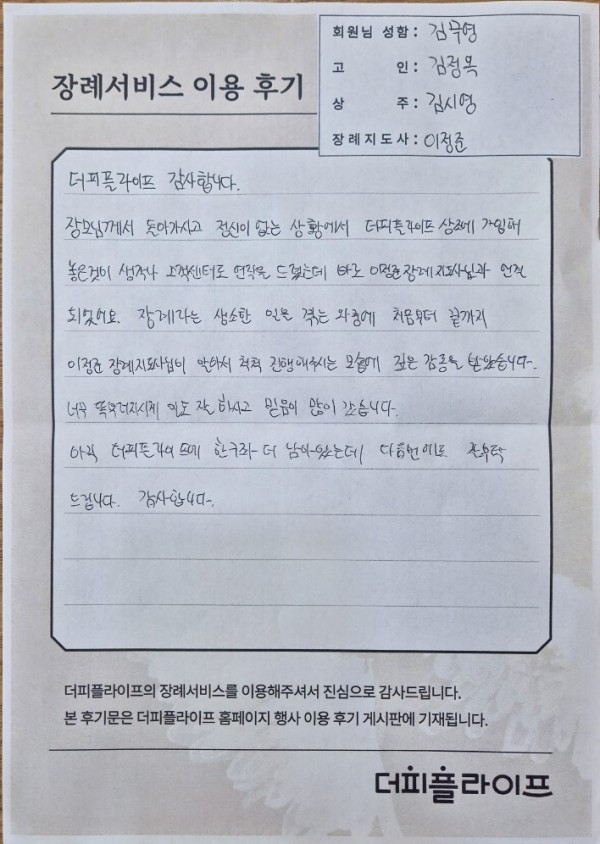 장례서비스 이용 후기
회원님 성함 : 김무영
고 인 : 김정목
상 주 : 김시영
장례지도사 : 이정준
더피플라이프 감사합니다.
장모님께서 돌아가시고 정신이 없는 상황에서 더피플라이프 상조에 가입해
놓은것이 생각나 고객센터로 연락을 드렸는데 바로 이정준 장례지도사님과 연결
되었어요. 장례라는 생소한 일을 겪는 와중에 처음부터 끝까지
이정준 장례지도사님이 알아서 척척 진행해주시는 모습에 깊은 감동을 받았습니다.
너무 똑부러지시게 일도 잘 하시고 믿음이 많이 갔습니다.
아직 더피플라이프에 한구좌 더 남아있는데 다음번에도 잘부탁
드립니다. 감사합니다.
더피플라이프의 장례서비스를 이용해주셔서 진심으로 감사드립니다.
본 후기문은 더피플라이프 홈페이지 행사 이용 후기 게시판에 기재됩니다.
더피플라이프